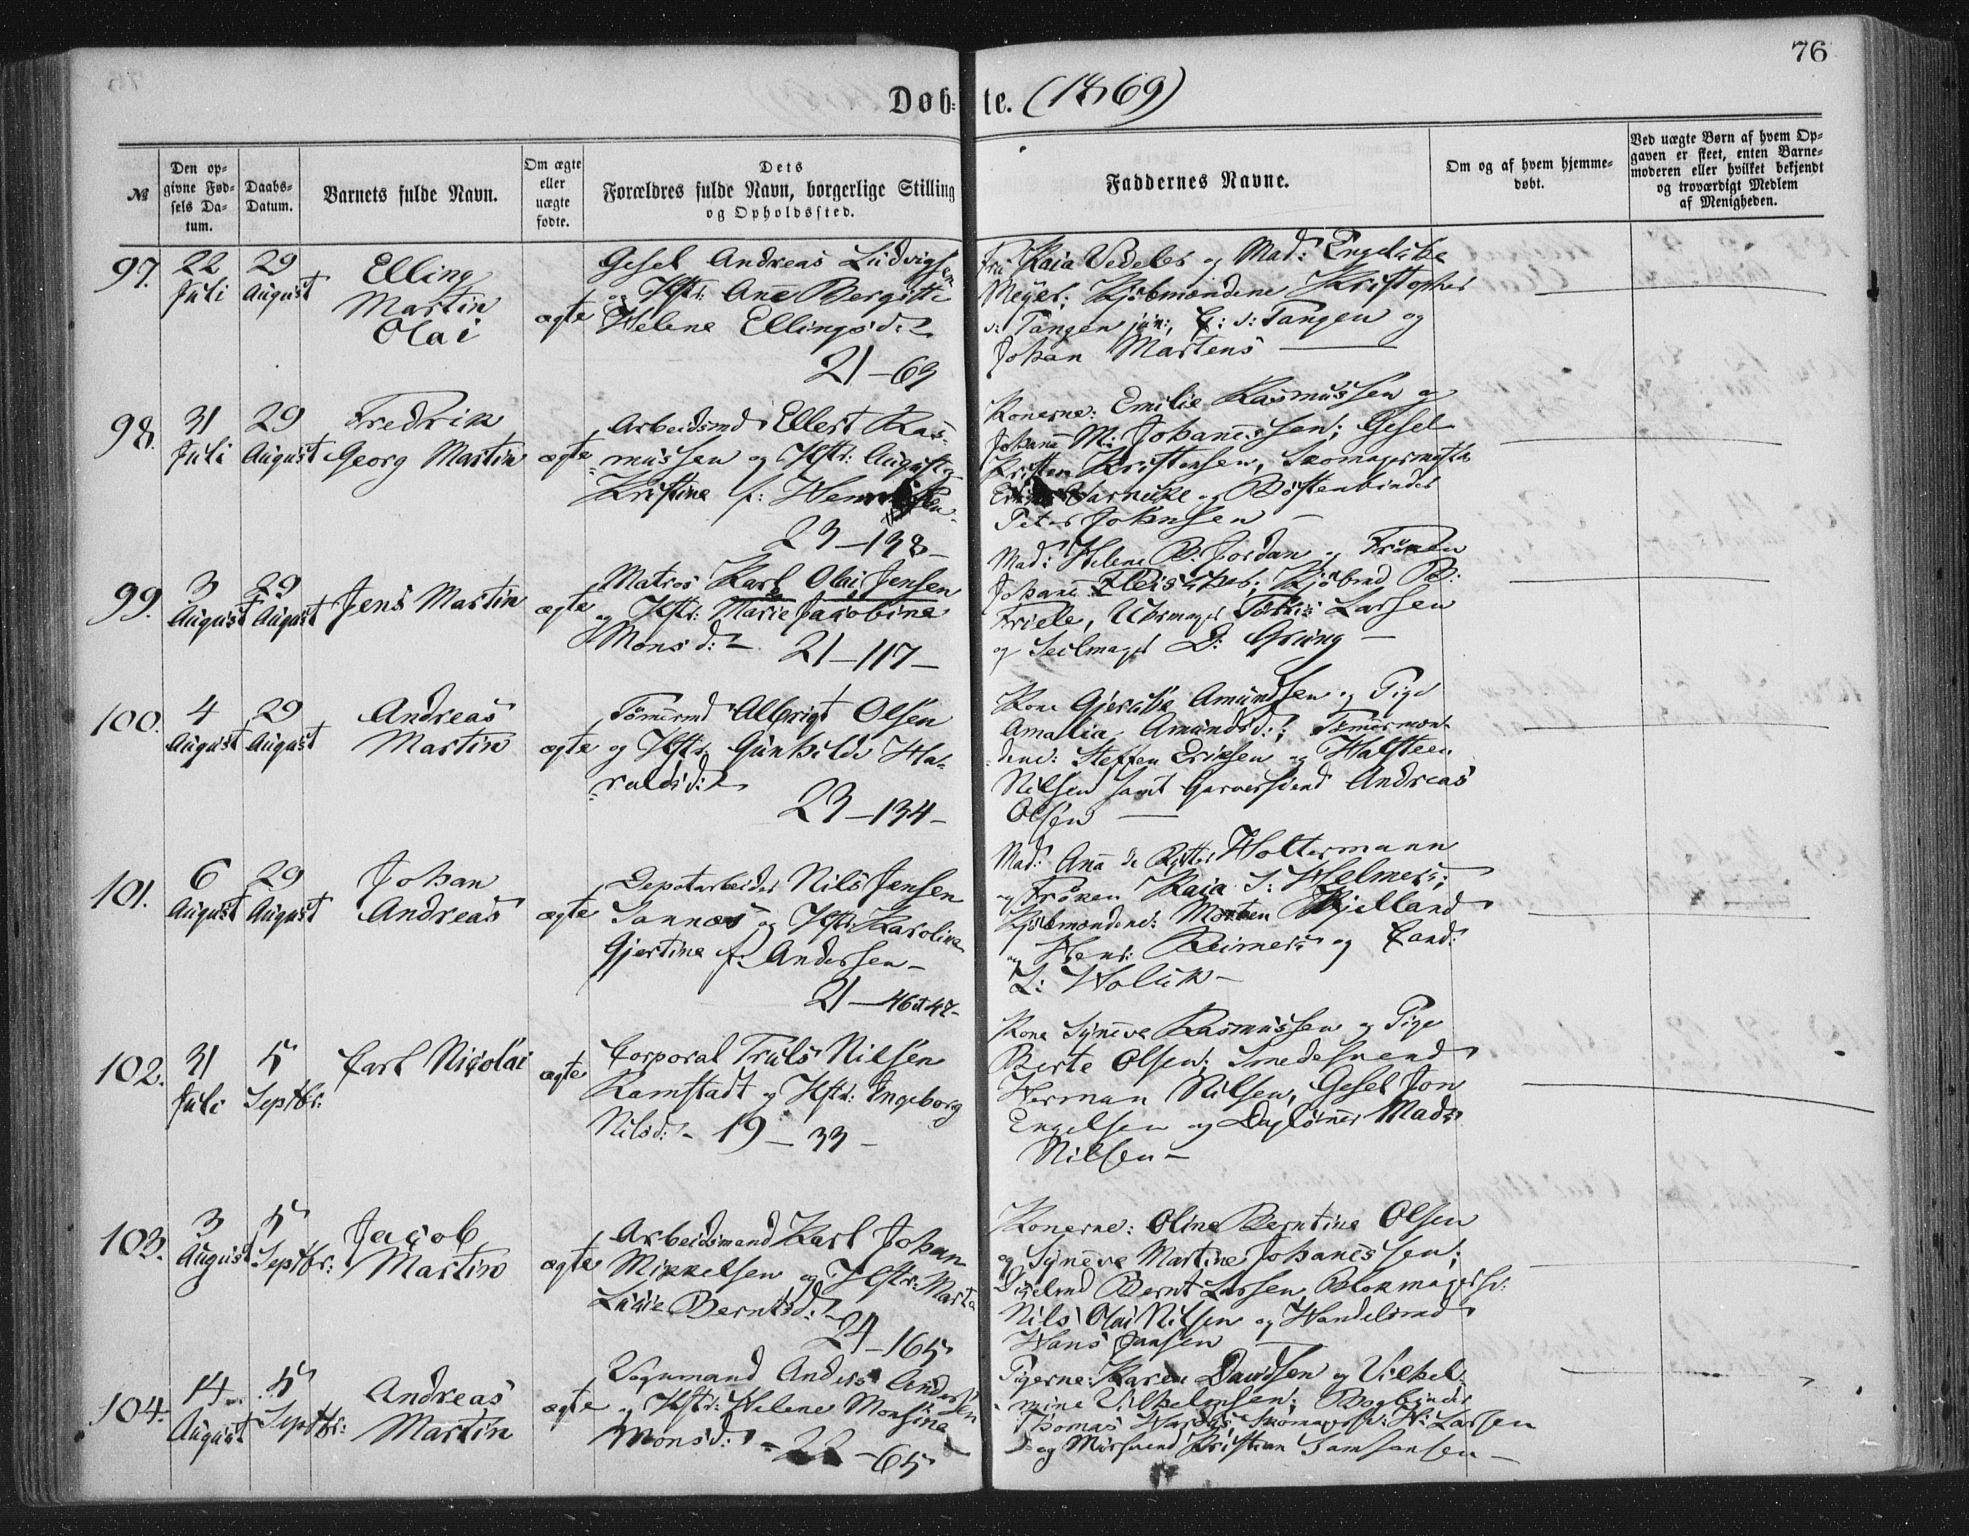 76
Døbte. (1869)
№
Den opgivne Fødsels Datum.
Daabs-Datum.
Barnets fulde Navn.
Om ægte eller uægte fødte.
Dets Forældres fulde Navn, borgerlige Stilling og Opholdssted.
Faddernes Navne.
Om og af hvem hjemmedøbt.
Ved uægte Børn af hvem Opgaven er skeet, enten Barnemoderen eller hvilket bekjendt og troværdigt Medlem af Menigheden.
97. 22 Juli 29 August Elling Martin Olai ægte
Gesel Andreas Ludvigsen
og Hstr: Ane Bergitte
Helene Ellingsd:
21–63
Fru Kaia Vedeler og Mad: Engelike
Meyer; Kjøbmændene Kristopher
v: Tangen jun:, C: v: Tangen og
Johan Martens
98. 31 Juli 29 August Fredrik Georg Martin ægte
Arbeidsmd Ellert Ras-
mussen og Hstr: Augusta
Kristine f:
23–138–
Konerne: Emilie Rasmussen og
Johane M: Johanessen; Gesel
Kristensen, Skomagermester
Warncke og Børstenbinder
Peter Johnsen
99. 3 August 29 August Jens Martin ægte
Matros Karl Olai Jensen
og Hstr: Marie Jacobine
Monsd:
21–117–
Mad: Helene B. Jordan og Frøken
Johane Fleischer; Kjøbmd B:
Friele, Uhrmager Larsen
og Seilmager D: Grung
100. 4 August 29 August Andreas Martin ægte
Tømermd Albrigt Olsen
og Hstr: Gunhilde Ha-
raldsd:
23–134–
Kone Gjertine Amundsen og Pige
Amalia Amundsd:; Tømermæn-
dene: Steffen Eriksen og Halsteen
Nilsen samt Garversvend Andreas
Olsen
101. 6 August 29 August Johan Andreas ægte
Depotarbeider Nils Jensen
Sannæs og Hstr: Karoline
Gjertine f: Andersen–
21–46 a 47–
Mad: Ana de Rytter Woltermann
og Frøken Kaia S: Helmers;
Kjøbmændene: Morten Kjelland
og Henr: Reimers og Cand:
L: Holck–
102. 31 Juli 5 Septbr: Carl Nicolai ægte
Corporal Truls Nilsen
Ramstadt og Hstr: Ingeborg
Nilsd:– 19–33–
Kone Syneve Rasmussen og Pige
Berte Olsen; Smedesvend
Herman Nilsen, Gesel Jon
Engelsen og Dagløner Mads
Nilsen–
103. 3 August 5 Septbr: Jacob Martin ægte
Arbeidsmand Karl Johan
Mikkelsen og Hstr: Marta
Lucie Berntsd:
24–165
Konerne: Oline Berntine Olsen
og Syneve Martine Johanessen;
Bernt Larsen, Blokmagersv:
Nils Olai Nilsen og Handelsmd
Hans Jansen
104. 14 August 5 Septbr: Andreas Martin ægte
Vognmand Anders Andersen
og Hstr: Helene Monsine
Monsd:– 22–65
Pigerne: Karen Davidsen og Vilhel-
mine Vilhelmsen; Bogbinder
Thomas Skomagersv: H: Larsen
og Mursvend Kristian Samsonsen–